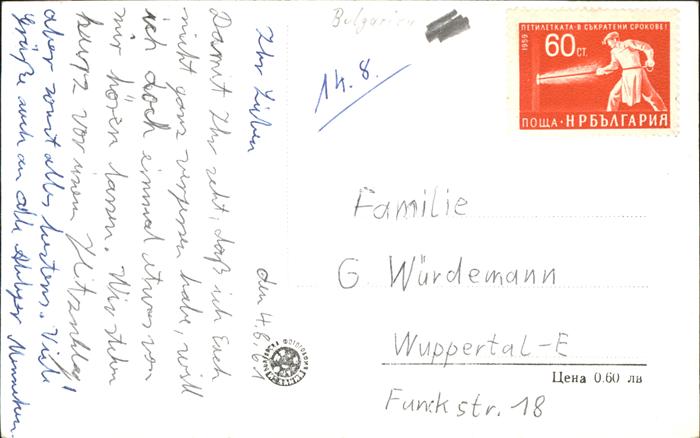 Bulgarien
14. 8.
ПЕТИЛЕТКАТА - В СЪКРАТЕНИ СРОКОВЕ!
1959
60 СТ.
ПОЩА · НР БЪЛГАРИЯ
den 4.8.61
Ihr Lieben
Damit Ihr seht, daß ich Euch
nicht ganz vergessen habe, will
ich doch einmal etwas von
mir hören lassen. Wir stehen
kurz vor einem Hitzschlag,
aber sonst alles bestens. Viele
Grüße auch an alle
Familie
G. Würdemann
Wuppertal-E
Funckstr. 18
Цена 0.60 лв